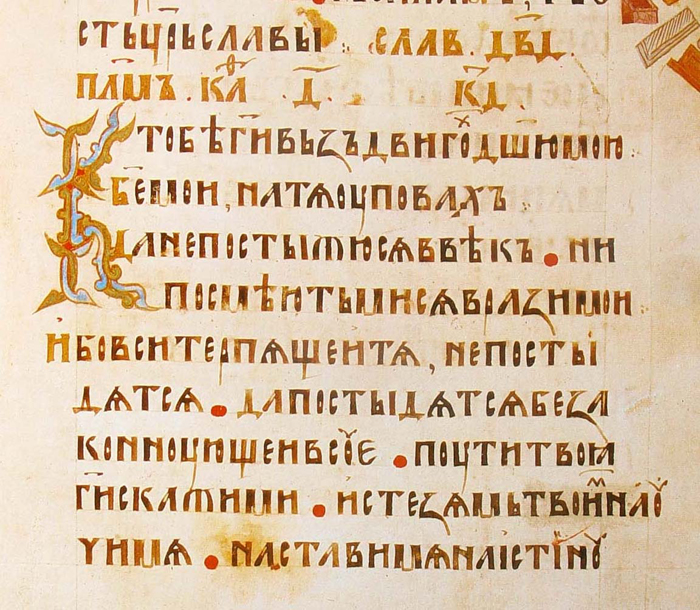 стьцр҃ьславы слав. дв҃д.
пл҃мъ. кл҃ д҃. кд҃.
Ктобѣг҃ивьзъдвигохдш҃юмою
бе҃мои, натѧоуповахъ
данепостыжюсѧввѣкъ. ни
посмѣютьмисѧвразимои
ибовситерпѧщеитѧ, непосты
дѧтсѧ. дапостыдѧтсѧбеза
коннующеивсуе. поутитвоꙗ
г҃искажими. истезѧмътвоимнау
чимѧ. наставимѧнаістіну